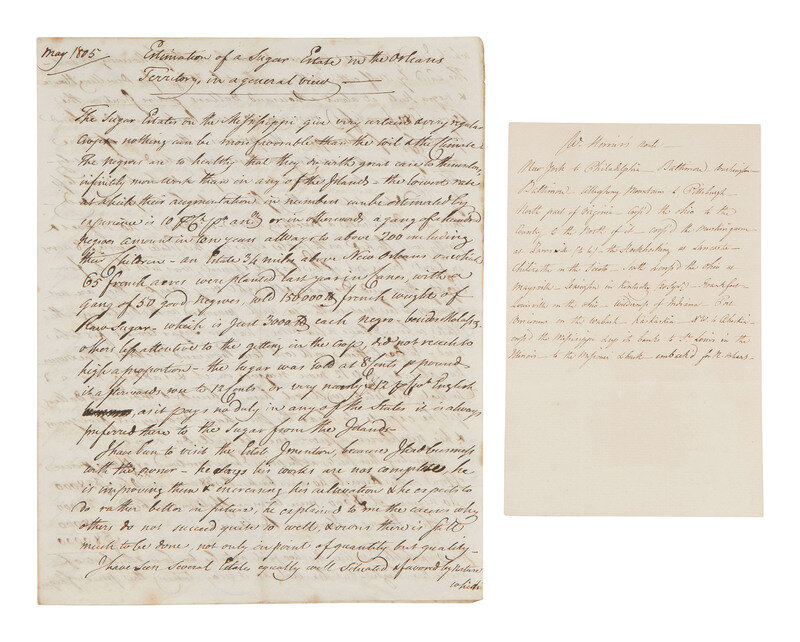 May 1805
Estimation of a Sugar Estate in the Orleans
Territory, in a general view
The Sugar Estates on the Mississippi give very certain & very regular
Crops - nothing can be more favorable than the soil & the Climate
the negroes are so healthy that they do with great ease to themselves
infinitely more work than in any of the Islands - the lowest rate
at which their augmentation in numbers can be estimated by
experience is 10 p Ct p ann or in otherwords a gang of hundred
negroes amount in ten years allways to above 200 including
their Children - an Estate 34 miles above New Orleans on which
65 french acres were planted last year in Canes, with a
gang of 50 good negroes, sold 150000 lb french weight of
Raw Sugar - which is just 3000 lb each negro - besides Molasses,
others less attention to the getting in the Crop, did not reach so
high a proportion - the sugar was sold at 8 Cents p pound
it afterwards rose to 12 Cents - or very nearly 12 p Cwt English
as it pays no duty in any of the States it is always
preferred there to the Sugar from the Islands
I have been to visit the Estate I mention, because I had business
with the owner - he says his works are not complete he
is improving them & increasing his cultivation & he expects to
do rather better in future, he explained to me the causes why
others do not succeed quite so well, & owns there is still
much to be done, not only in point of quantity but quality -
I have seen several Estates equally well situated & favored by nature
which
New York to Philadelphia Baltimore Washington
Baltimore Alleghany Mountains to Pittsburgh
North part of Virginia cross'd the Ohio to the
Country to the North of it - cross'd the Muskingum
at Lancaster
Chilicothe on the Scioto - South cross'd the Ohio at
Maysville Lexington in Kentucky Frankfort
Louisville on the Ohio - wilderness of Indiana
Vincennes on the Wabash Kaskaskia
cross'd the Mississippi to St Louis in the
Illinois - to the Missouri & back embarked for N. Orleans -